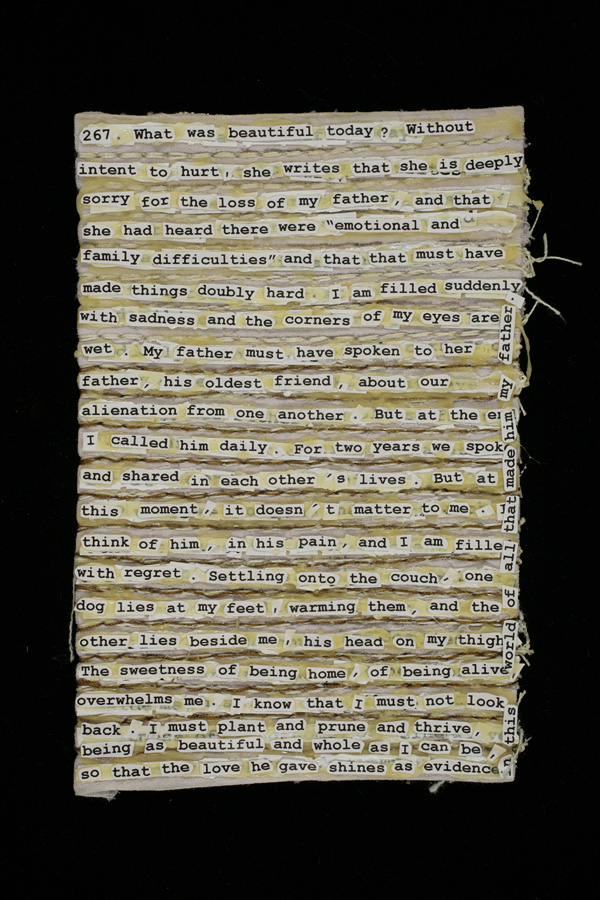 267. What was beautiful today? Without
intent to hurt, she writes that she is deeply
sorry for the loss of my father, and that
she had heard there were "emotional and
family difficulties" and that that must have
made things doubly hard. I am filled suddenly
with sadness and the corners of my eyes are
wet. My father must have spoken to her
father, his oldest friend, about our
alienation from one another. But at the en
I called him daily. For two years we spok
and shared in each other's lives. But at
this moment, it doesn't matter to me. I
think of him, in his pain, and I am fille
with regret. Settling onto the couch, one
dog lies at my feet, warming them, and the
other lies beside me, his head on my thigh
The sweetness of being home, of being alive
overwhelms me. I know that I must not look
back. I must plant and prune and thrive,
being as beautiful and whole as I can be,
so that the love he gave shines as evidence
in this world of all that made him my father.